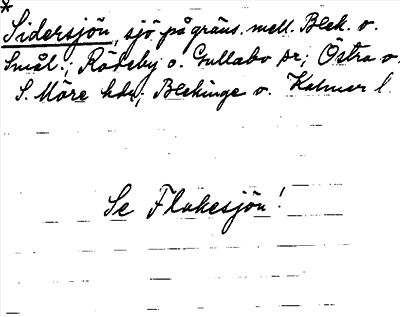 * Sidersjön, sjö på gräns. mell. Blek. o.
Smål.; Rödeby o. Gullabo sr; Östra o.
S. Möre hdr; Blekinge o. Kalmar l.
Se Flakesjön!